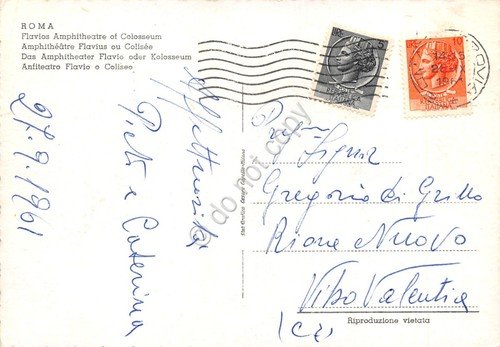 ROMA
Flavios Amphitheatre of Colosseum
Amphithéâtre Flavius ou Colisée
Das Amphitheater Flavio oder Kolosseum
Anfiteatro Flavio o Coliseo
LIRE 5
LIRE 10
Affettuosità
Pietro e Caterina
27.9.1961
do not copy
Signor
Gregorio di Grillo
Rione Nuovo
Vibo Valentia
(CZ)
Riproduzione vietata